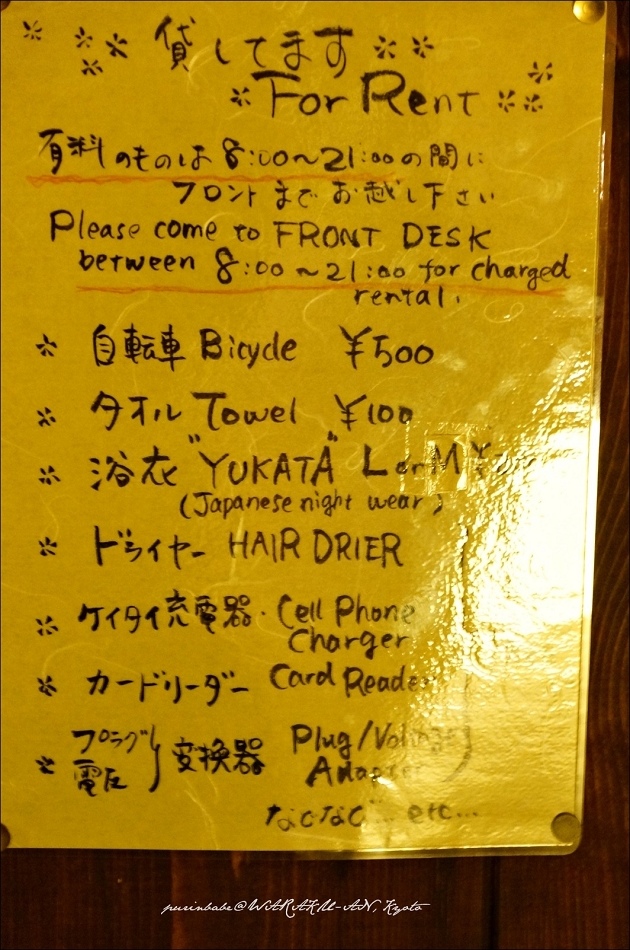 貸してます
For Rent
有料のものは 8:00～21:00の間に
フロントまでお越し下さい
Please come to FRONT DESK
between 8:00～21:00 for charged
rental.
自転車 Bicycle ¥500
タオル Towel ¥100
浴衣 "YUKATA" L or M ¥
(Japanese night wear)
ドライヤー HAIR DRIER
ケイタイ充電器・Cell Phone
Charger
カードリーダー Card Reader
プラグ Plug/Voltage
電圧 変換器 Adapter
などなど… etc...
purinbabe@WARAKU-AN, Kyoto